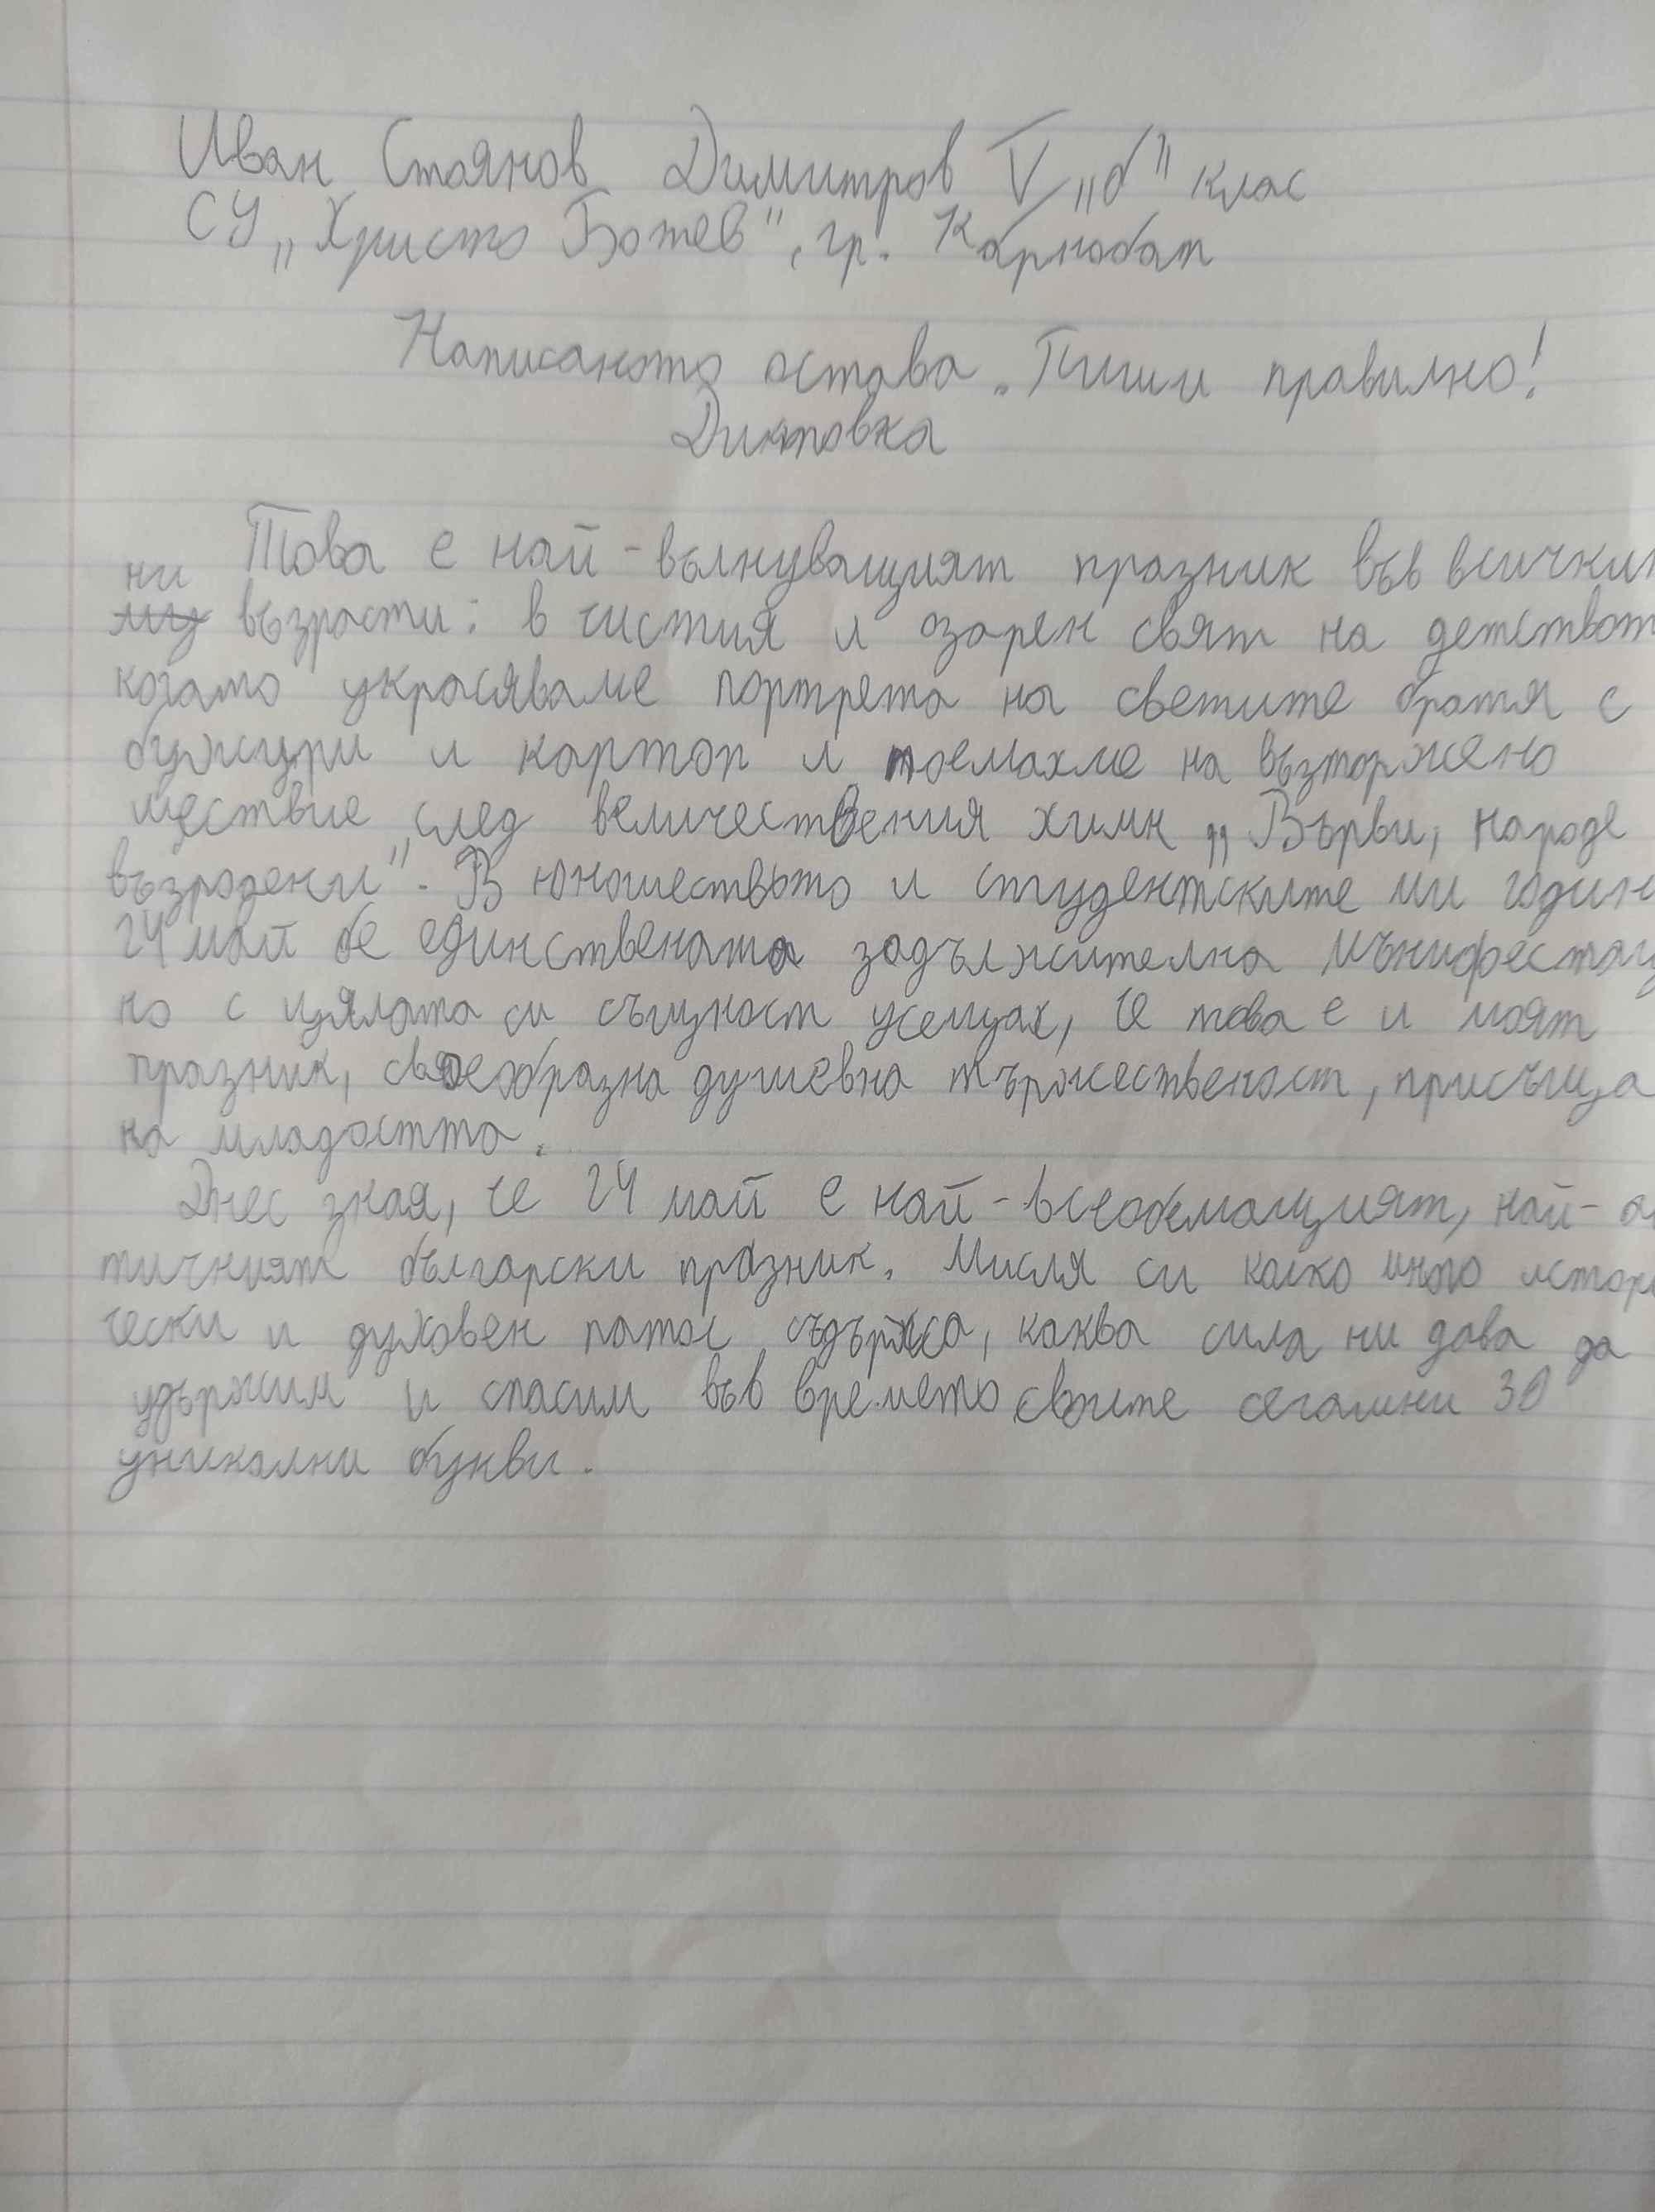 Иван Стоянов Димитров V „б" клас
СУ „Христо Ботев", гр. Карнобат
Написаното остава. Пиши правилно!
Диктовка
Това е най-вълнуващият празник във
ни
възрасти: в чистия и озарен свят на
когато украсяваме портрета на светите братя с
бужури и картоп и поемахме на възторжено
шествие след величествения химн „Върви, народе
възродени". В юношеството и студентските ми
24 май бе единствената задължителна
но с цялата си същност усещах, че това е и моят
празник, своеобразна душевна тържественост, присъща
на младостта.
Днес зная, че 24 май е най-всеобемащият, най-
тичният български празник. Мисля си колко
чески и духовен патос съдържа, каква сила ни дава да
удържим и спасим във времето своите сегашни 30
уникални букви.